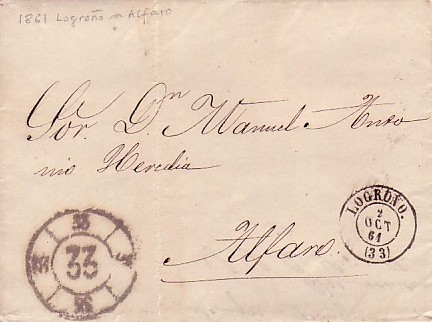 1861 Logroño a Alfaro
Sor. Dn Manuel Anto
nio Heredia
Alfaro.
LOGROÑO.
2
OCT
61
(33)
33
33
33
33